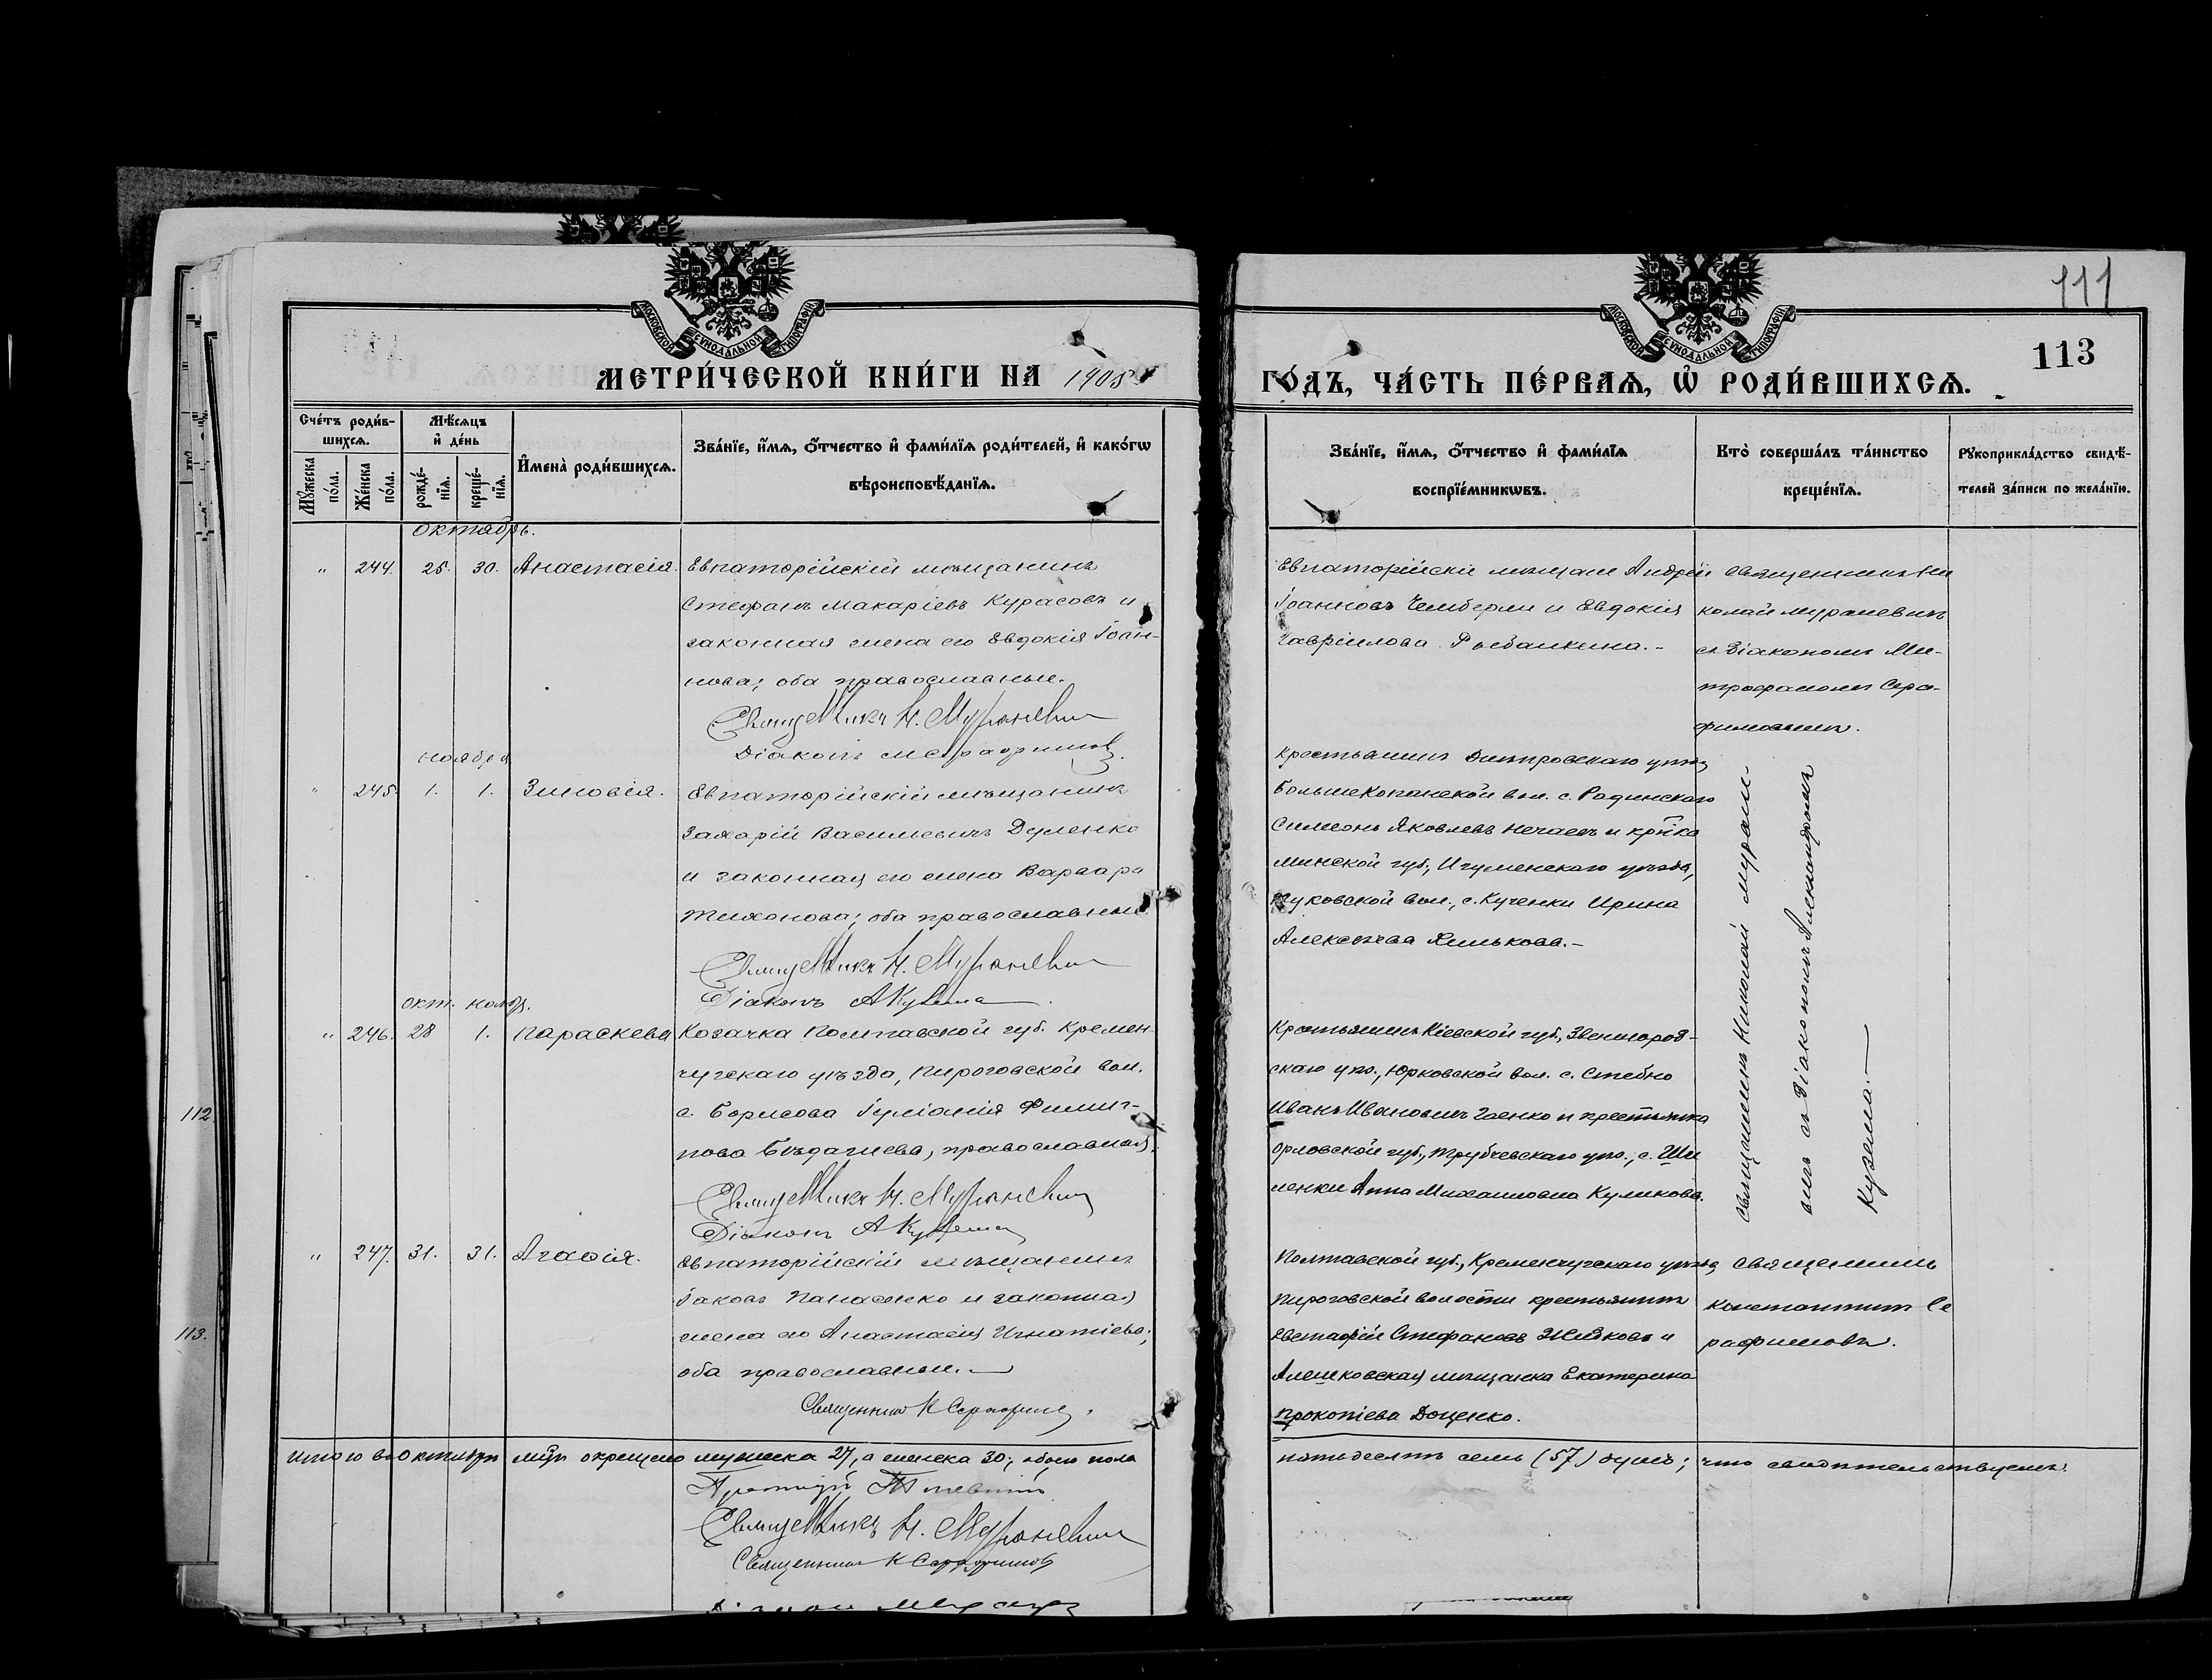 111
113
МОСКОВСКОЙ СѴНОДАЛЬНОЙ ТИПОГРАФІИ
МОСКОВСКОЙ СѴНОДАЛЬНОЙ ТИПОГРАФІИ
МЕТРИ́ЧЕСКОЙ КНИ́ГИ НА 1908
ГО́ДЪ, ЧА́СТЬ ПЕ́РВАѦ, Ѡ҆ РОДИ́ВШИХСѦ.
Сче́тъ роди́в-
шихсѧ.
Мꙋ́жеска по́ла.
Же́нска по́ла.
Мѣ́сѧцъ
и҆ де́нь
рожде́-нїѧ.
креще́-нїѧ.
И҆мена̀ роди́вшихсѧ.
Зва́нїе, и҆́мѧ, ѻ҆́тчество и҆ фами́лїѧ роди́телей, и҆ како́гѡ
вѣроисповѣ́данїѧ.
Зва́нїе, и҆́мѧ, ѻ҆́тчество и҆ фами́лїѧ
воспрїе́мникѡвъ.
Кто̀ соверша́лъ та́инство
креще́нїѧ.
Рꙋкоприкла́дство свидѣ́-
телей за́писи по жела́нїю.
октябрь.
" 244. 25. 30. Анастасія.
Евпаторійскій мѣщанинъ
Стефанъ Макаріевъ Курасовъ и
законная жена его Евдокія Іоан-
нова; оба православные.
Священникъ Н. Мураневич
Діаконъ
Евпаторійскіе мѣщане Андрей
Іоанновъ Чемберли и Евдокія
Гавріилова Рыбалкина.-
Священникъ Ни
колай Мураневичъ
съ Діакономъ Ми-
трофаномъ Сера-
фимовымъ.
ноября
" 245. 1. 1. Зиновія.
Евпаторійскій мѣщанинъ
Захарій Васильевичъ Дуленко
и законная его жена Варвара
Тихонова; оба православные.
Священникъ Н. Мураневич
Діаконъ А Кузема
крестьянинъ Днѣпровскаго уѣзд
Большекопанской вол. с. Радинскаго
Симеонъ Яковлевъ Нечаевъ и кр-ка
Минской губ., Игуменскаго уѣзда,
с. Кученки Ирина
Алексѣева
Священникъ Николай Муран-
евичъ съ Діакономъ Александромъ
Кузема.—
окт. нояб.
" 246. 28 1. Параскева
Козачка Полтавской губ. Кремен-
чугскаго уѣзда, Пироговской вол.
с. Борисова Іуліанія Филип-
пова православная.
Священникъ Н. Мураневич
Діаконъ А Кузема
Крестьянинъ Кіевской губ., Звенигород-
скаго уѣз., Юрковской вол. с. Стебно
Иванъ Ивановичъ Гаенко и крестьянка
Орловской губ., Трубчевскаго уѣз., с. Ши
ленки Анна Михаиловна Куликова.
112.
" 247. 31. 31. Агаѳія.
Евпаторійскій мѣщанинъ
Іаковъ Панасенко и законная
жена его Анастасія Игнатіева;
оба православные.—
Священникъ К Серафимов
Полтавской губ., Кременчугскаго уѣзда
Пироговской волости крестьянинъ
Евстафій Стефановъ и
Алешковская мѣщанка Екатерина
Прокопіева Доценко.
Священникъ
Константинъ Се
рафимовъ.
113.
Итого въ Октябрѣ м-цѣ окрещено мужеска 27, а женска 30; обоего пола
пятьдесятъ семь (57) душъ; что свидѣтельствуемъ:
Священникъ Н. Мураневич
Священникъ К Серафимовъ